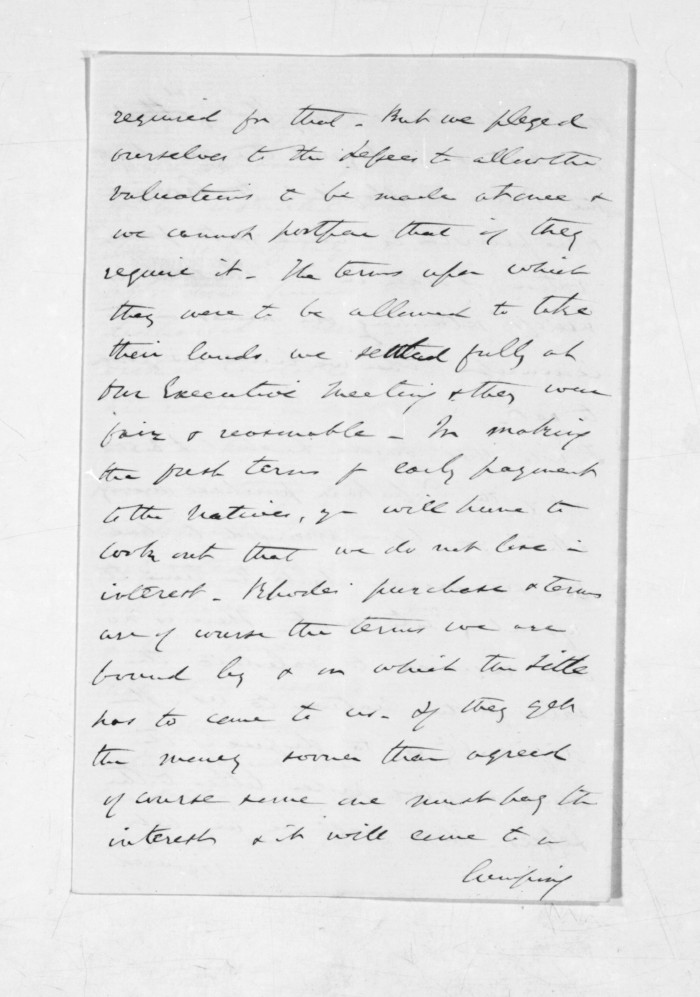 required for that - But we pleged
ourselves to the Lessees to allow the
valuations to be made at once &
we cannot postpone that if they
require it - The terms upon which
they were to be allowed to take
their lands we settled fully at
our Executive Meeting & they were
fair & reasonable - In making
the fresh terms for early payment
to the Natives, you will have to
look out that we do not lose in
interest - Rhodes' purchase & terms
are of course the terms we are
bound by & on which the title
has to come to us - If they get
the money sooner than agreed
of course some one must pay the
interest & it will come to a